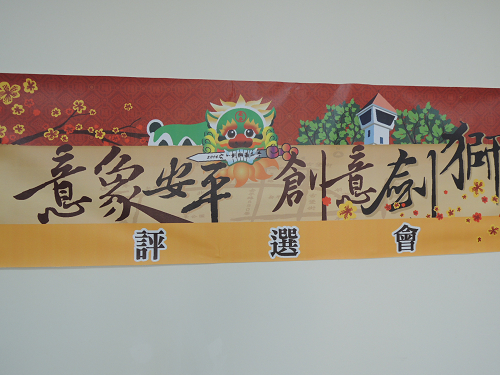 意象安平 創意劍獅
評選會